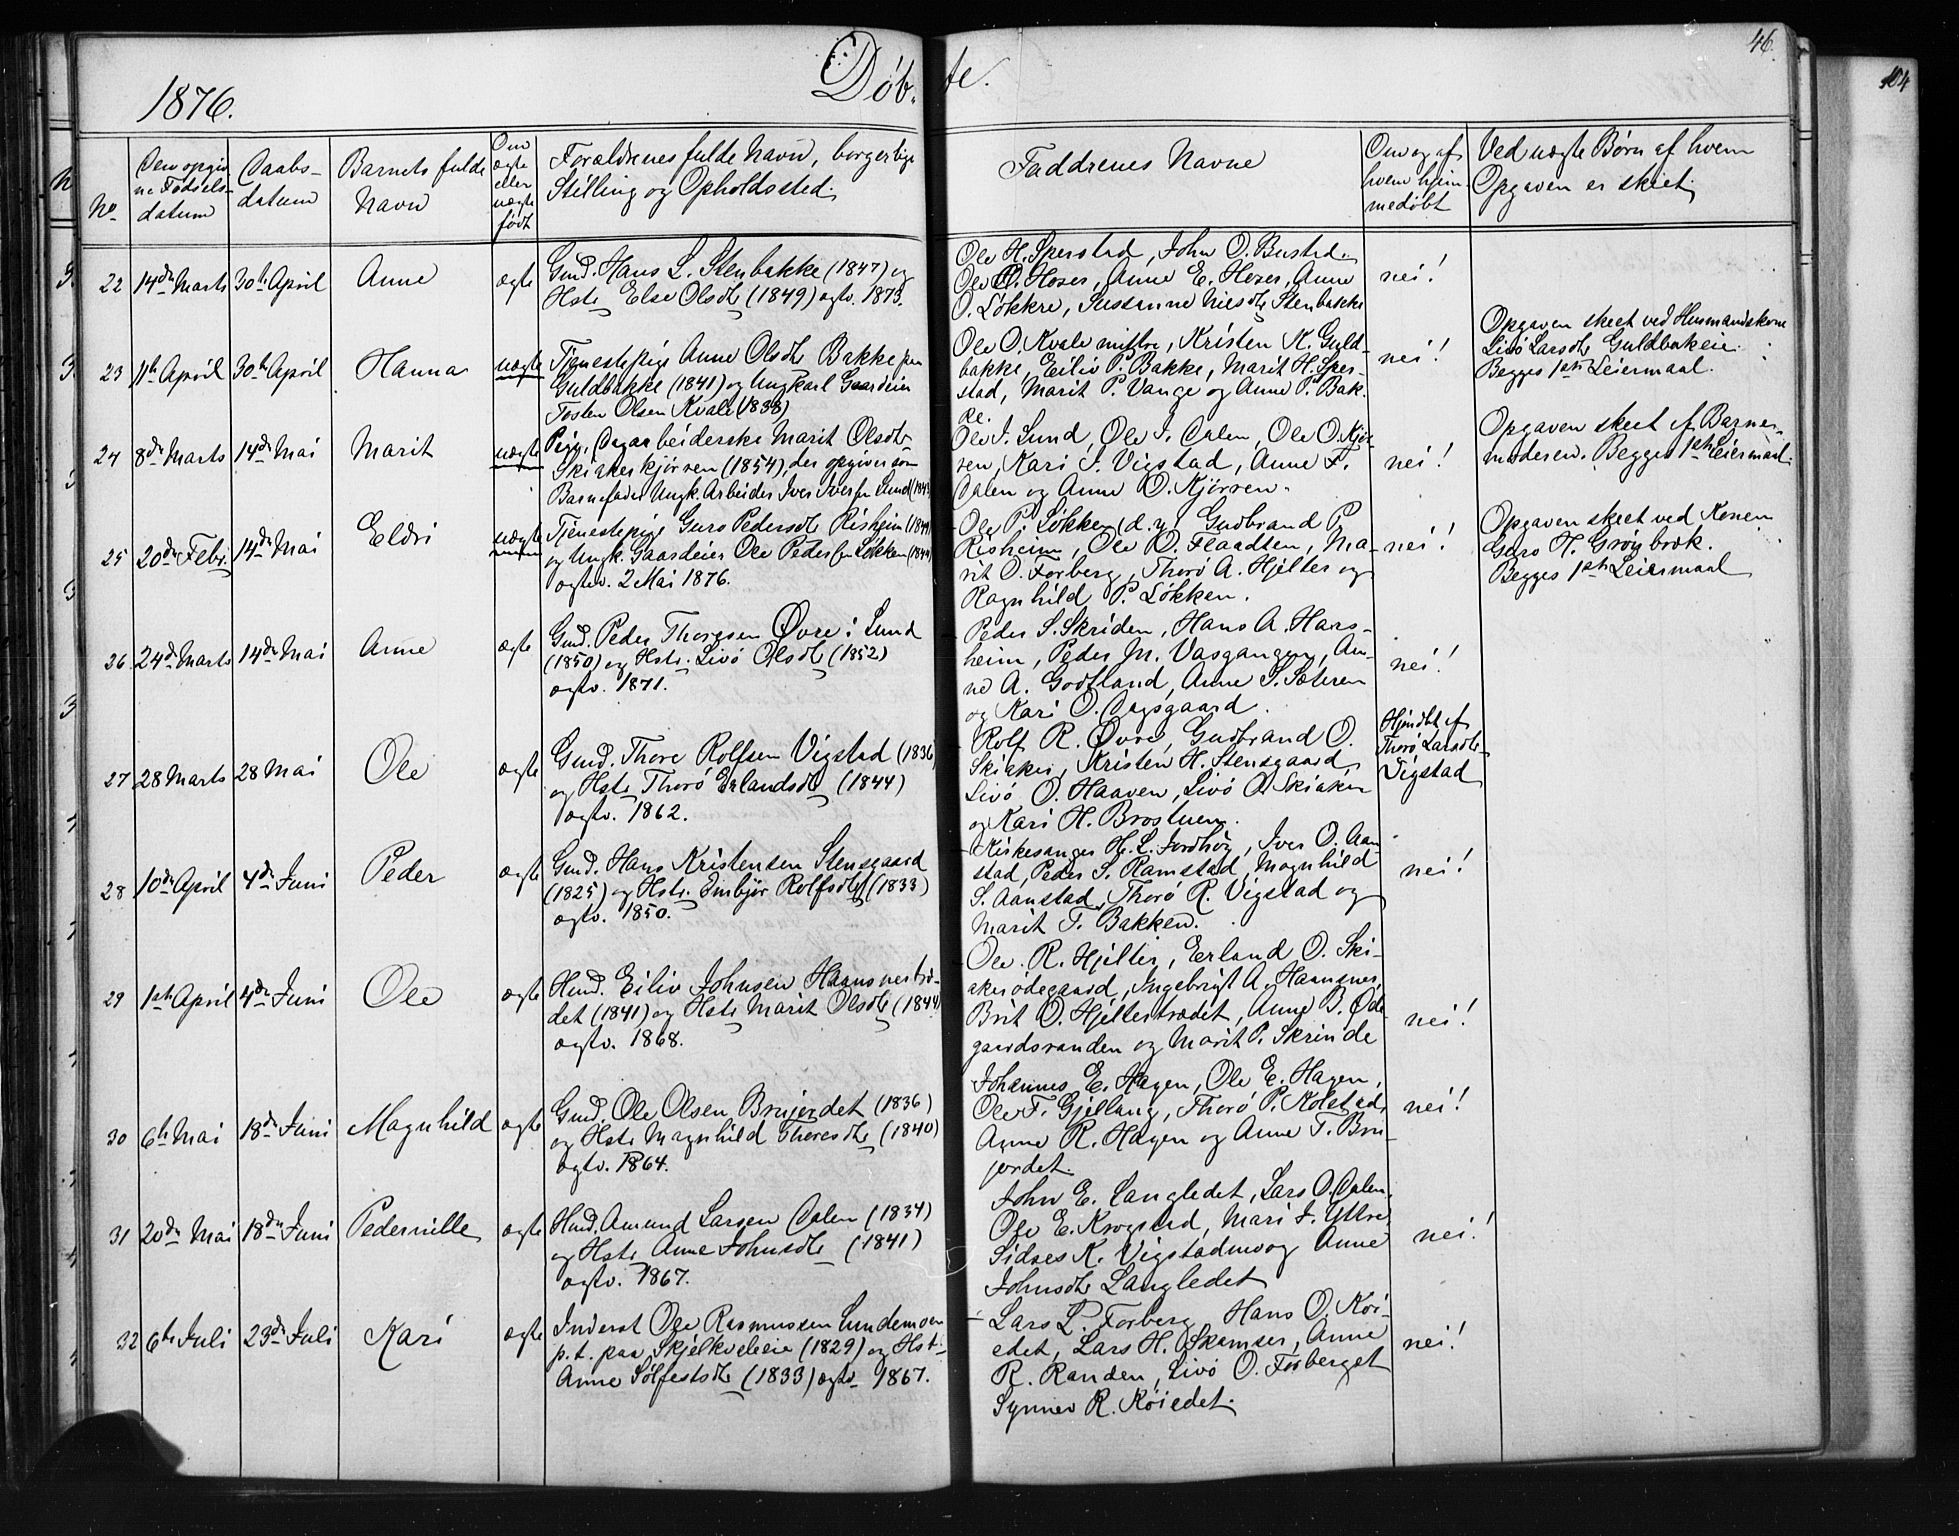 1876.
Døbte.
46.
104
No
Den opgivne Fødselsdatum
Daabsdatum
Barnets fulde Navn
Om ægte eller uægte født
Forældrenes fulde Navn, borgerlige
Stilling og Opholdssted.
Faddrenes Navne
Om og af hvem hjemmedøbt
Ved uægte Børn af hvem
Opgaven er skeet.
22 14de Marts 30te April Anne ægte
Gmd. Hans L. Stenbakke (1847) og
Hstr Else Olsdtr (1849) ægtv. 1873.
Ole H. Sperstad, John O. Bustad
Ole O. Hoser, Anne E. Hoser, Anne
O. Løkkre, Sussanne Nilsdtr Stenbakke
nei!
23 11te April 30te April Hanna uægte
Tjenestepige Anne Olsdtr Bakke paa
Guldbakke (1841) og Ungkarl Gaardeier
Tosten Olsen Kvale (1838)
Ole O. Kvale, Kristen K. Guld-
bakke, Eiliv P. Bakke, Marit H. Sper-
stad, Marit P. Vange og Anne P. Bak-
ke.
nei!
Opgaven skeet ved Husmandskone
Livó Larsdtr Guldbakeie.
Begges 1ste Leiermaal.
24 8de Marts 14de Mai Marit uægte
Pige, Dagarbeiderske Marit Olsdtr
Skiakerkjørren (1854) der opgiver som
Barnefader Ungk. Arbeider Iver Iversen Lund
Ole I. Lund, Ole I. Dalen, Ole O. Kjør-
ren, Kari I. Vigstad, Anne F.
Dalen og Anne O. Kjørren.
nei!
Opgaven skeet af Barne-
moderen. Begges 1ste Leiermaal.
25 20de Febr. 14de Mai Eldri uægte
Tjenestepige Guro Pedersdtr Risheim
og Ungk. Gaardeier Ole Pedersen Løkken
ægtev. 2 Mai 1876.
Ole P. Løkken d.y. Gudbrand P.
Risheim, Ole O. Flaadten, Ma-
rit O. Forberg, Thoró A. Hjelter og
Ragnhild P. Løkken.
nei!
Opgaven skeet ved Konen
Guro H. Grøybrok.
Begges 1ste Leiermaal
26 24de Marts 14de Mai Anne ægte
Gmd. Peder Thoresen Øvre i Lund
(1850) og Hstr. Livó Olsdtr (1852)
ægtv. 1871.
Peder S. Skriden, Hans A. Hars-
heim, Peder M. Vasgangen, An-
ne A. Godtland, Anne S. Sæteren
og Kari O. Dagsgaard.
nei!
27 28 Marts 28 Mai Ole ægte
Gmd. Thore Rolfsen Vigstad (1836)
og Hstr Thoró Erlandsdtr (1844)
ægtv. 1862.
Rolf R. Øvre, Gudbrand O.
Skiaker, Kristen H. Stensgaard
Livó O. Haaven, Livó O. Skiaker
og Kari H. Brostuen.
Hjmdbt af
Thoró Larsdtr
Vigstad
28 10de April 4de Juni Peder ægte
Gmd. Hans Kristensen Stensgaard
(1825) og Hstr. Embjør Rolfsdtr (1833)
ægtv. 1850.
Kirkesanger H. L. Jordhøy, Iver O. Aan-
stad, Peder S. Ramstad, Magnhild
S. Aanstad, Thoró R. Vigstad og
Marit T. Bakken.
nei!
29 1ste April 4de Juni Ole ægte
Hmd. Eiliv Johnsen Haansnestræ-
det (1841) og Hstr Marit Olsdtr (1844)
ægtv. 1868.
Ole R. Hjelter, Erland O. Ski-
akerødegaard, Ingebrigt A. Haansnes,
Brit O. Hjeltestrædet, Anne B. Øde-
gaardsranden og Marit P. Skrinde
nei!
30 6te Mai 18de Juni Magnhild ægte
Gmd. Ole Olsen Brujordet (1836)
og Hstr Magnhild Thoresdtr (1840)
ægtv. 1864.
Johannes E. Hagen, Ole E. Hagen,
Ole F. Gjellang, Thoró P. Kolstad,
Anne R. Hagen og Anne T. Bru-
jordet.
nei!
31 20de Mai 18de Juni Pedernille ægte
Hmd. Amund Larsen Dalen (1834)
og Hstr Anne Johnsdtr (1841)
ægtv. 1867.
John E. Langledet, Lars O. Dalen,
Ole E. Krogstad, Mari J. Yttre,
Sidsel K. Vigstadmo og Anne
Johnsdtr Langledet
nei!
32 6te Juli 23de Juli Kari ægte
Inderst Ole Rasmussen Lundemoen
p.t. paa Skjelkvaleeie (1829) og Hstr
Anne Sølfestsdtr (1833) ægtv 1867.
Lars L. Forberg, Hans O. Røi-
edet, Lars H. Skamser, Anne
R. Randen, Livó O. Forberget
Synnev R. Røiedet.
nei!